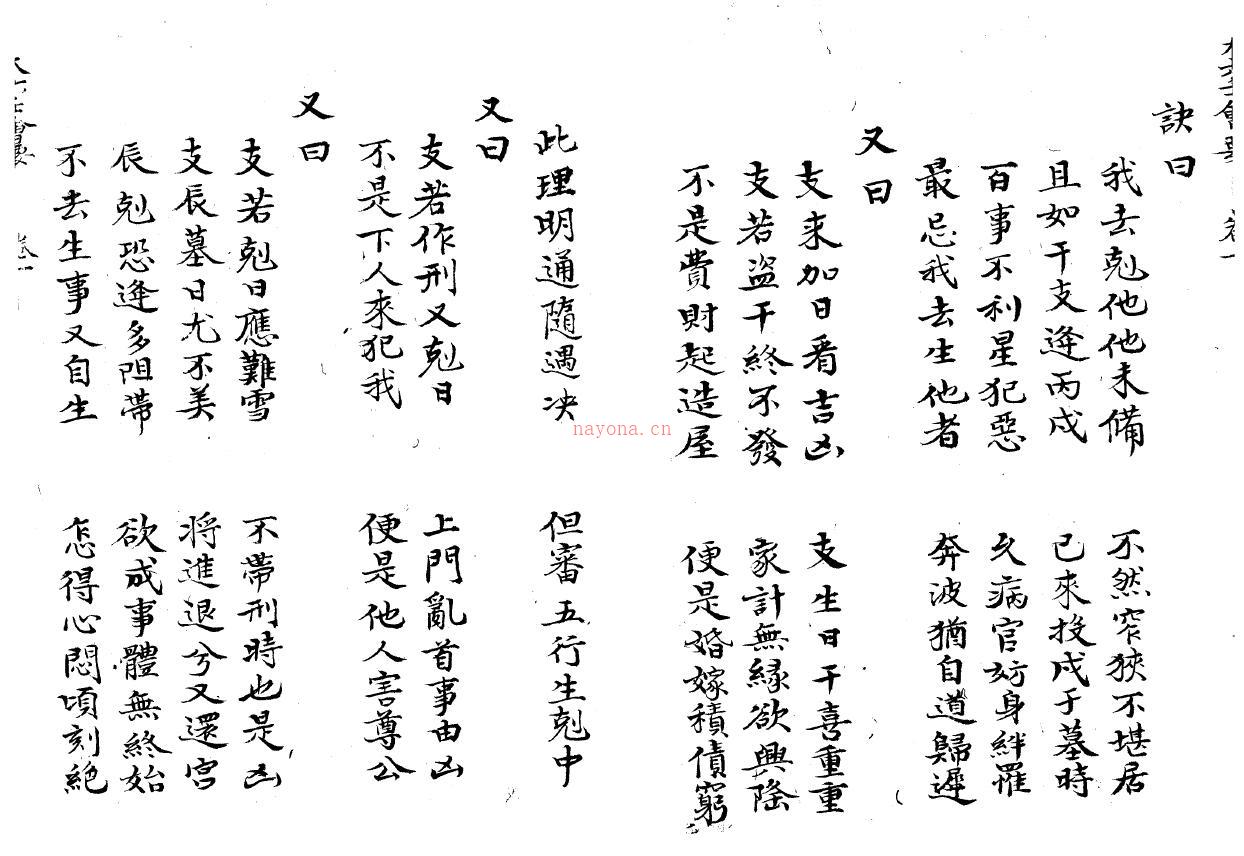 訣曰
我去剋他他未備 不然窄狹不堪居
且如干支逢丙戌 已來投戌于墓時
百事不利星犯惡 久病官妨身絆羅
最忌我去生他者 奔波猶自道歸遲
又曰
支来加日看吉凶 支生日干喜重重
支若盜干終不發 家計無緣欲興隆
不是費財起造屋 便是婚嫁積債窮
此理明通隨遇决 但審五行生剋中
又曰
支若作刑又剋日 上門亂首事由凶
不是下人來犯我 便是他人害尊公
又曰
支若剋日應難雪 不帶刑時也是凶
支辰墓日尤不美 将進退兮又還宮
辰剋恐逢多阻帶 欲成事體無終始
不去生事又自生 怎得心悶頃刻絕
nayona.cn